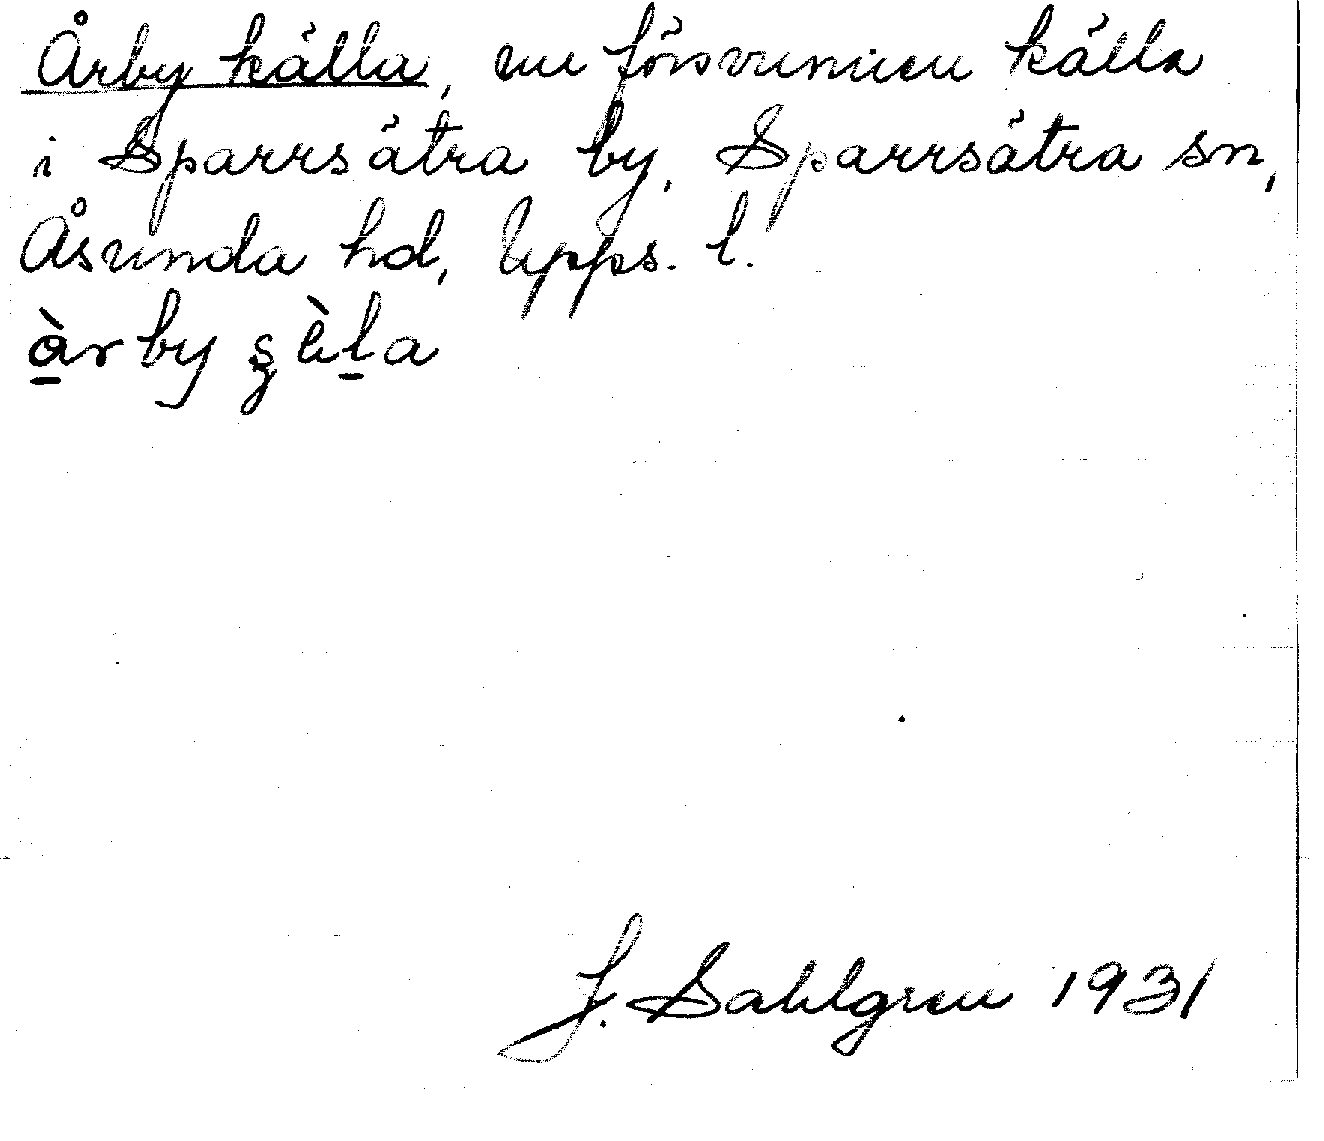 Årby källa, nu försvunnen källa
i Sparrsätra by, Sparrsätra sn,
Åsunda hd, Upps. l.
àrby
J. Sahlgren 1931